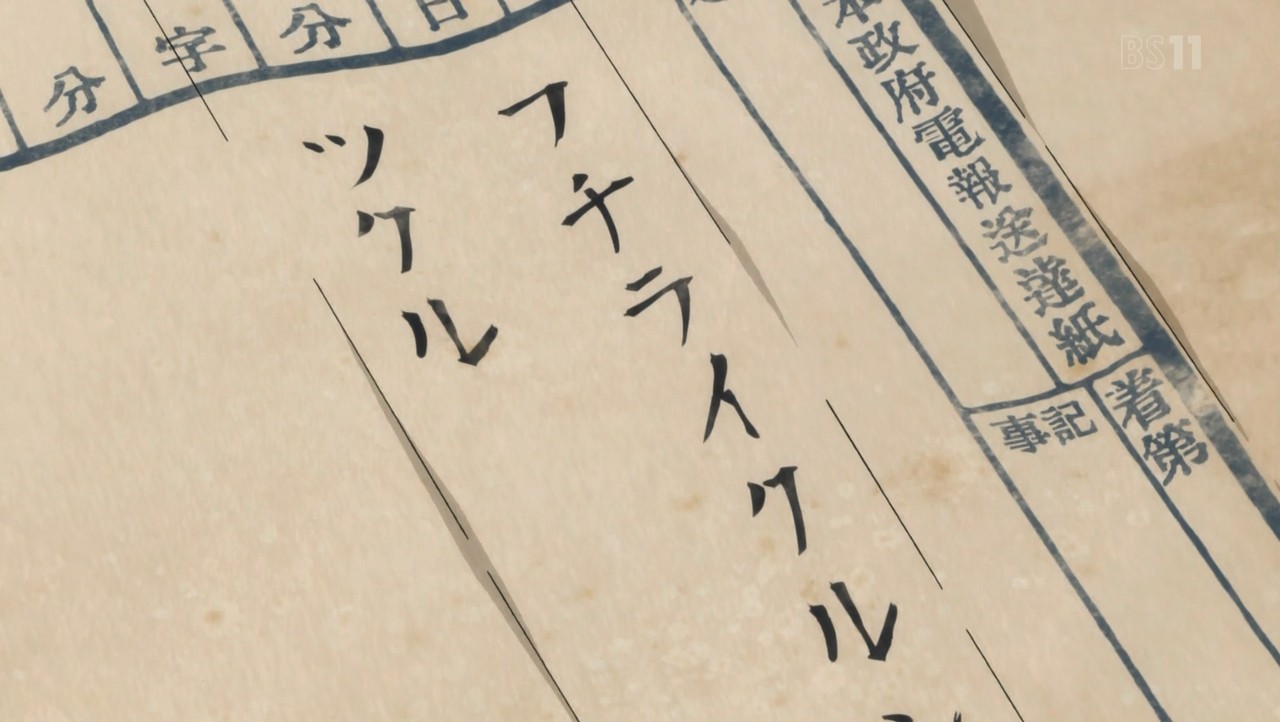 BS11
本政府電報送達紙
着第
記事
日
分
字
分
フチライクル
ツクル